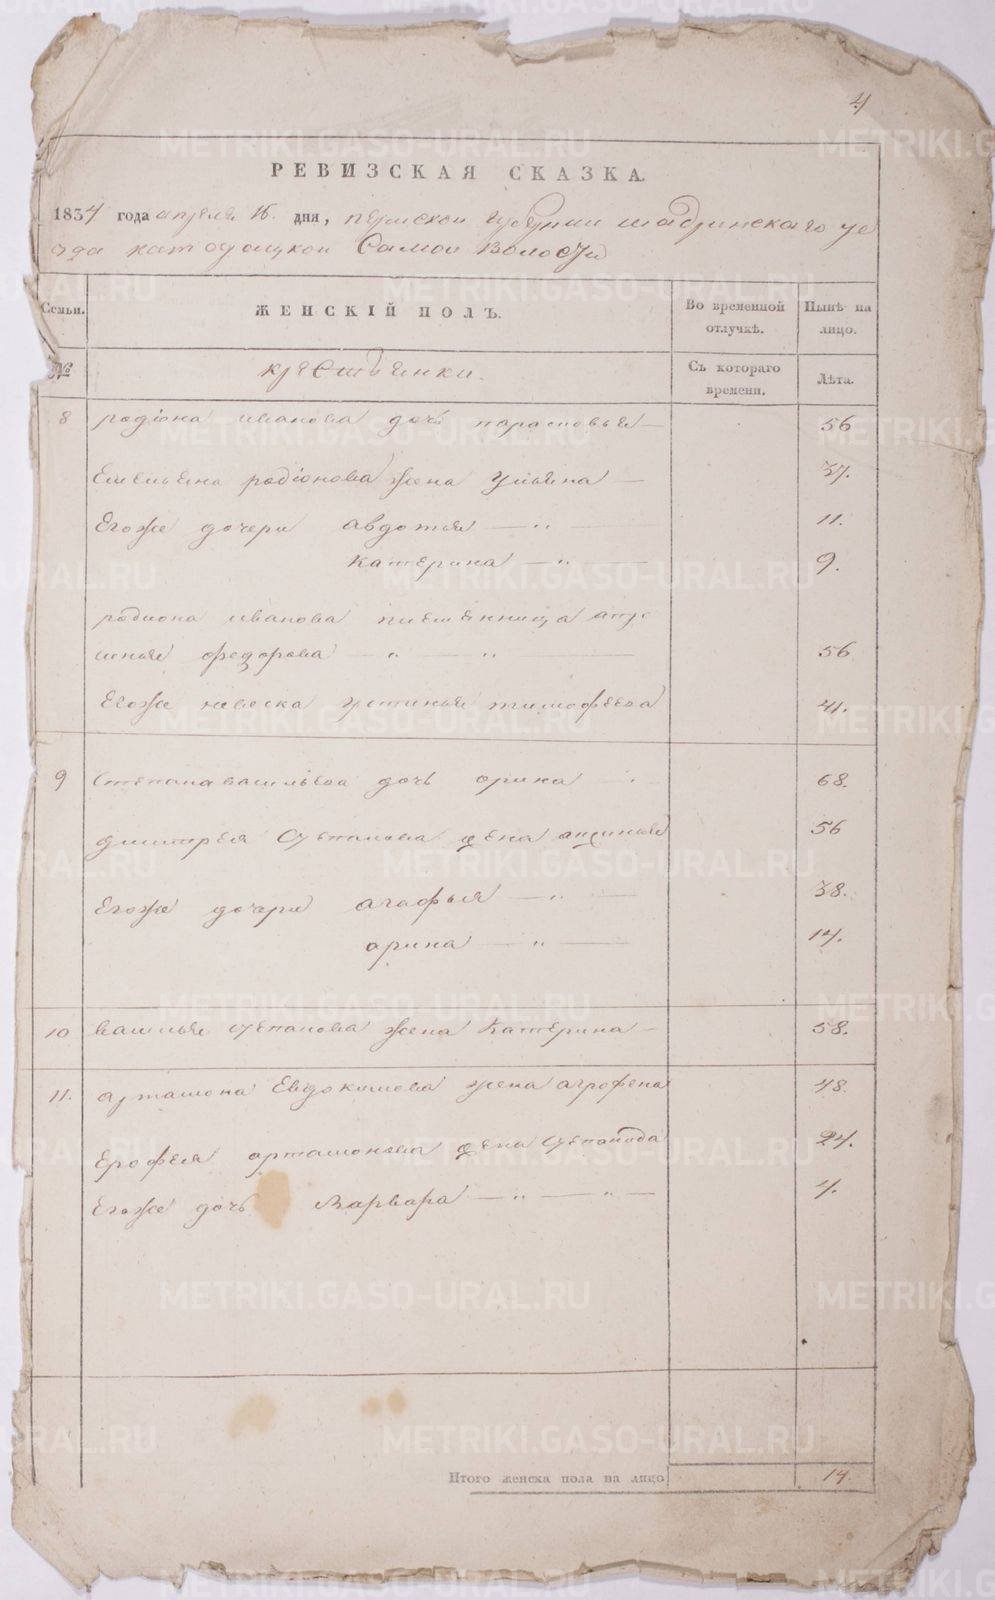 4
РЕВИЗСКАЯ СКАЗКА.
1834 года апреля 16. дня, пермской губернии шадринскаго уе
зда катодицкой Самои Волости
Семьи. ЖЕНСКІЙ ПОЛЪ. Во временной отлучкѣ. Нынѣ на лицо.
№ крестьянки. Съ котораго времени. Лѣта.
8 родіона иванова дочь парасковья 56
Емельяна родіонова жена Ульяна 37.
Егоже дочери авдотья — „ 11.
Катерина — „ — 9.
родиона иванова племенница
федорова — „ — „ — 56
Егоже невеска устинья тимофеева 41.
9 Степана васильева дочь орина 68.
дмитрея Степанова жена 56
Егоже дочери агафья — „ — 38.
орина — „ — 14.
10 василья степанова жена Катерина 58.
11. артамона Евдокимова жена агрофена 48.
Ерофея артамонова жена 24.
Егоже дочь Варвара — „ — „ — 4.
Итого женска пола на лицо 14.
METRIKI.GASO-URAL.RU